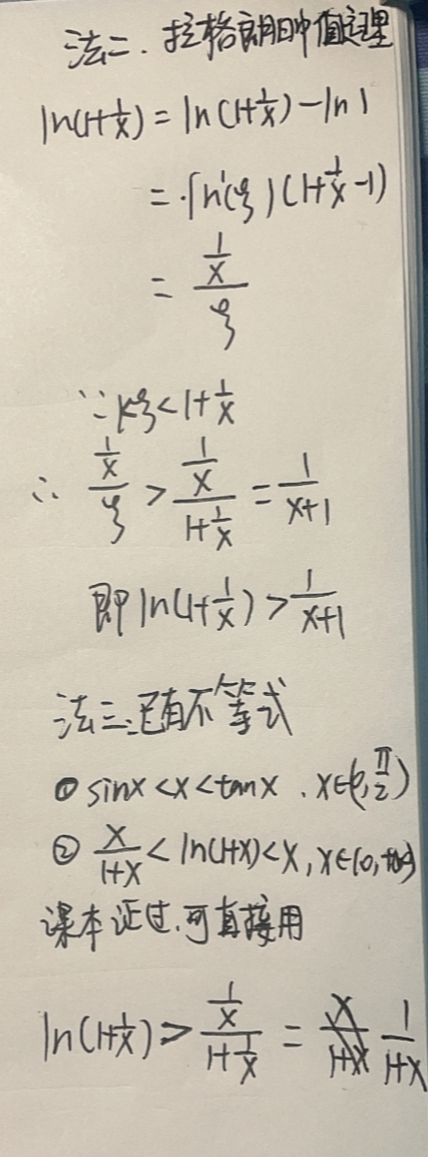 法二、拉格朗日中值定理
ln(1+1/x) = ln(1+1/x) - ln1
= ln'(ξ)(1+1/x-1)
= (1/x)/ξ
∵ 1<ξ<1+1/x
∴ (1/x)/ξ > (1/x)/(1+1/x) = 1/(x+1)
即 ln(1+1/x) > 1/(x+1)
法三、已有不等式
① sinx < x < tanx、x∈(0,π/2)
② x/(1+x) < ln(1+x) < x, x∈(0,+∞)
课本证过、可直接用
ln(1+1/x) > (1/x)/(1+1/x) = 1/(1+x)